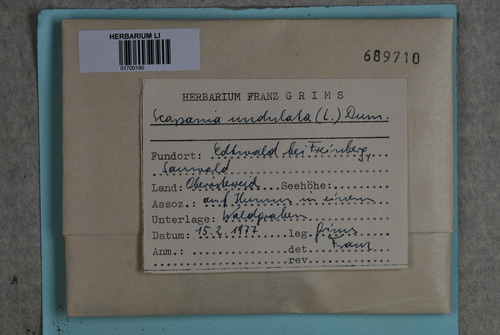 HERBARIUM LI
01700190
689710
HERBARIUM FRANZ GRIMS
Scapania undulata (L.) Dum.
Fundort: Edtwald bei Freinberg,
Sauwald
Land: Oberösterreich Seehöhe:
Assoz.: auf Humus in einem
Unterlage: Waldgraben
Datum: 15.2.1977 leg. Grims
Anm.: det. Franz
rev.